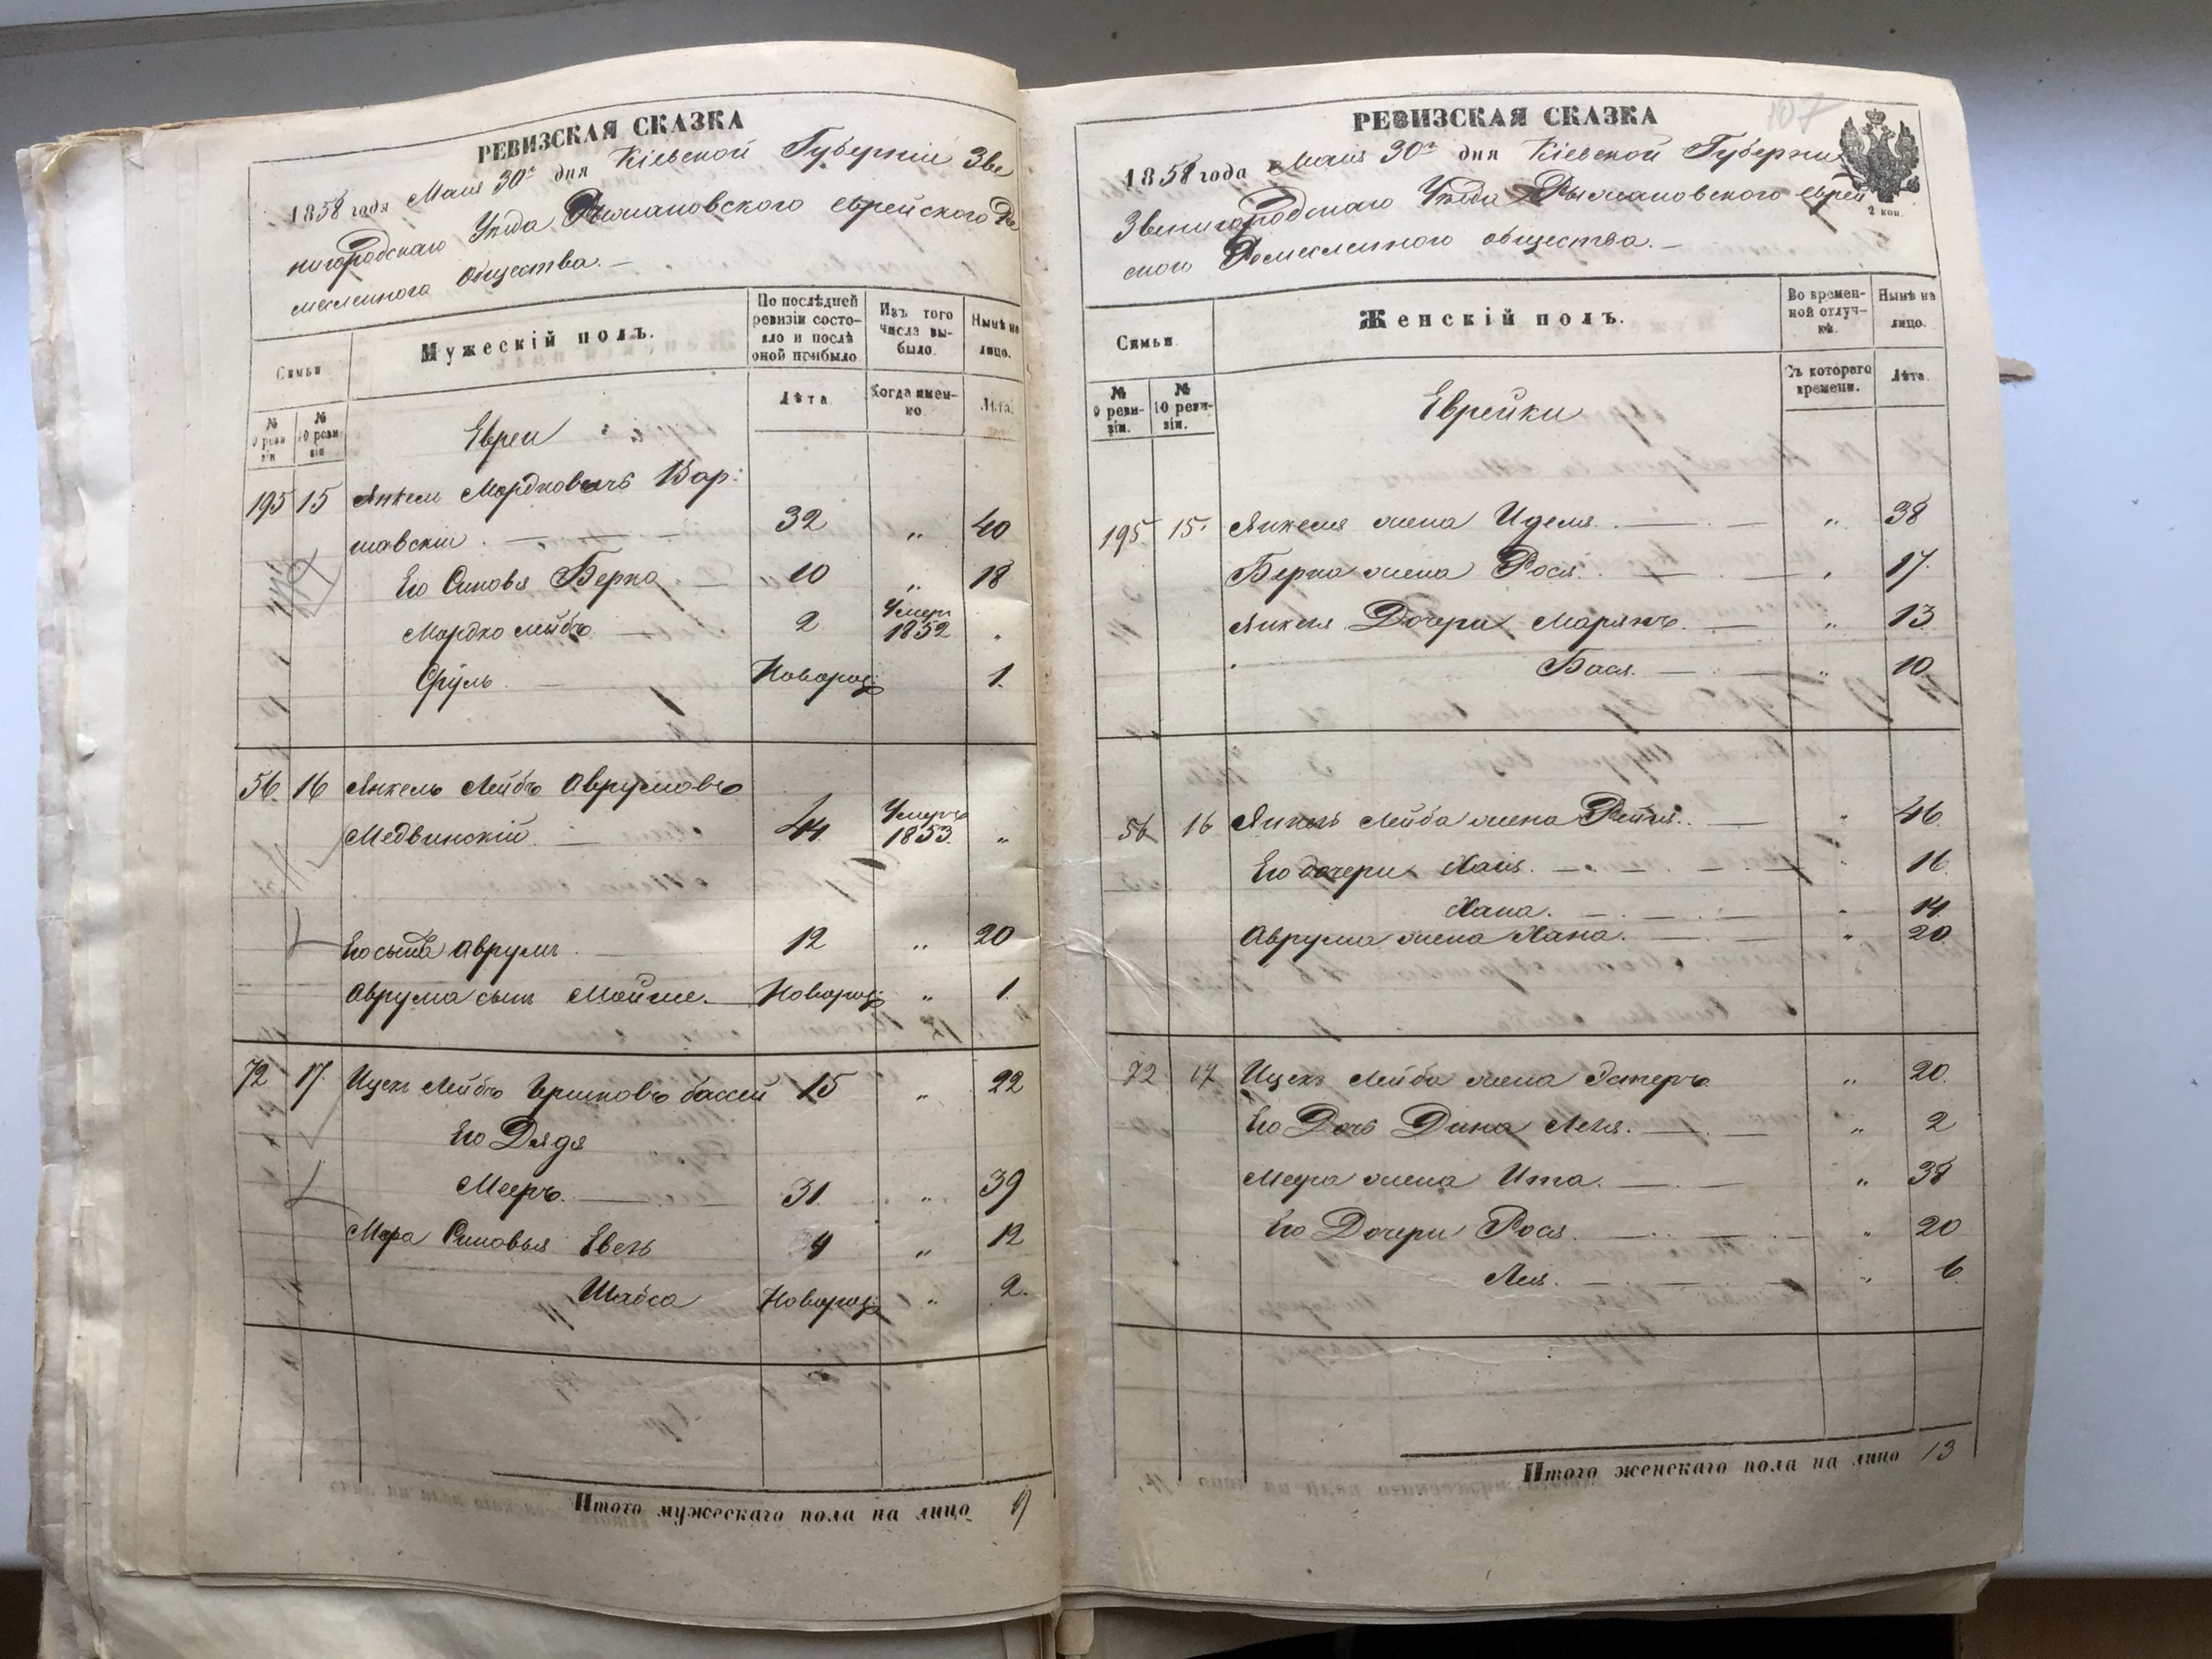 РЕВИЗСКАЯ СКАЗКА
1858 года Мая 30го дня Кіевской Губерніи Зве
нигородскаго Уѣзда Рыжановского еврейского Ре
месленного Общества. —
Семьи
Мужескій полъ.
По послѣдней ревизіи состояло и послѣ оной прибыло
Изъ того числа выбыло.
Нынѣ на лицо.
№ 9 ревизіи
№ 10 ревизіи
Лѣта
Когда именно.
Лѣта.
Евреи
195 15 Янкель Мордковичъ Вар:
шавскій. 32 „ 40
Его Сыновья Берко 10 „ 18
Мордко Лейбъ 2 Умеръ 1852 „
Сруль Новорож: 1.
56. 16 Янкель Лейбъ Аврумовъ
Медвинскій. 44 Умеръ 1853. „
Его сынъ Аврумъ 12 „ 20
Аврума сынъ Мойше. Новорож: „ 1.
72 17. Ицекъ Лейбъ Гершковъ 15 „ 22
Его Дядя
Мееръ. 31. „ 39
Меера Сыновья „ 12
Шабса Новорож: „ 2.
Итого мужескаго пола на лицо 9
РЕВИЗСКАЯ СКАЗКА
107
1858 года Мая 30го дня Кіевской Губерніи
Звенигородскаго Уѣзда Рыжановского еврей
ского Ремесленного общества. —
2 коп.
Семьи
Женскій полъ.
Во временной отлучкѣ.
Нынѣ на лицо.
№ 9 ревизіи.
№ 10 ревизіи.
Съ котораго времени.
Лѣта.
Еврейки
195 15. Янкеля жена Идеся. „ 38
Берка жена Рося. „ 17.
Янкеля Дочери Марьямъ. „ 13
Бася. „ 10.
56 16 Янкель Лейба жена Рейзя. „ 46.
Его дочери Хая. „ 16.
Хана. „ 14.
Аврума жена Хана. „ 20.
72 17 Ицекъ Лейба жена Эстеръ „ 20.
Его Дочь Дина Лея. „ 2
Меера жена Ита. „ 38
Его Дочери Рося. „ 20
Лея. „ 6
Итого женскаго пола на лицо 13